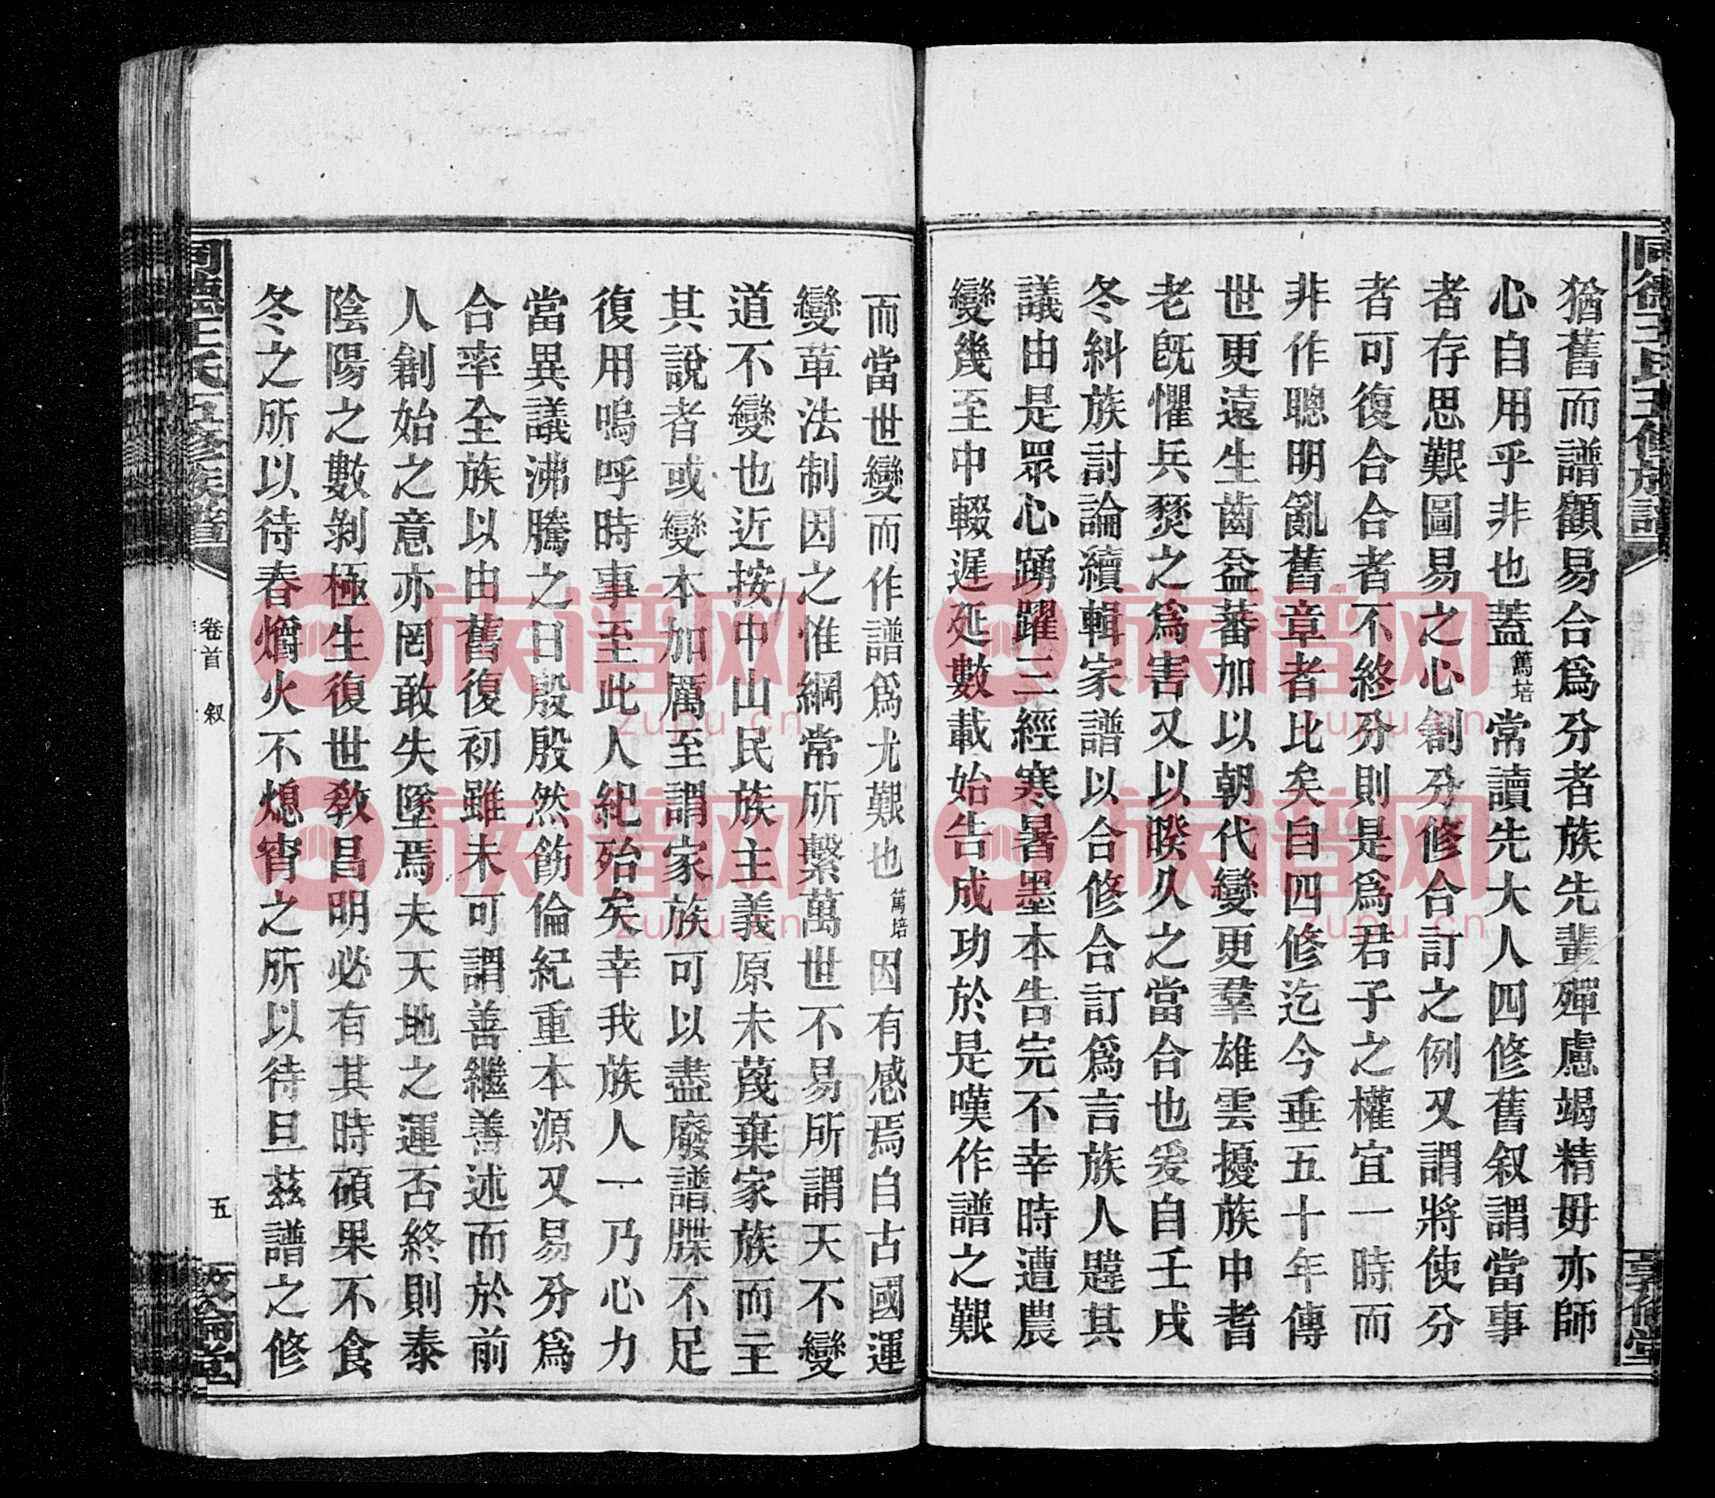 猶舊而譜顧易合爲分者族先輩殫慮竭精毋亦師
心自用乎非也蓋篤培常讀先大人四修舊叙謂當事
者存思艱圖易之心創分修合訂之例又謂將使分
者可復合合者不終分則是爲君子之權宜一時而
非作聰明亂舊章者比矣自四修迄今垂五十年傳
世更遠生齒益蕃加以朝代變更羣雄雲擾族中耆
老旣懼兵燹之爲害又以暌久之當合也爰自壬戌
冬糾族討論續輯家譜以合修合訂爲言族人韙其
議由是眾心踴躍三經寒暑墨本告完不幸時遭農
變幾至中輟遲延數載始告成功於是嘆作譜之艱
而當世變而作譜爲尤艱也篤培因有感焉自古國運
變革法制因之惟綱常所繫萬世不易所謂天不變
道不變也近按中山民族主義原未蔑棄家族而主
其說者或變本加厲至謂家族可以盡廢譜牒不足
復用嗚呼時事至此人紀殆矣幸我族人一乃心力
當異議沸騰之日殷殷然飭倫紀重本源又易分爲
合率全族以由舊復初雖未可謂善繼善述而於前
人創始之意亦罔敢失墜焉夫天地之運否終則泰
陰陽之數剝極生復世敎昌明必有其時碩果不食
冬之所以待春爝火不熄宵之所以待旦茲譜之修
卷首 叙
五
敦倫堂
族谱网
zupu.cn
族谱网
zupu.cn
族谱网
zupu.cn
族谱网
zupu.cn